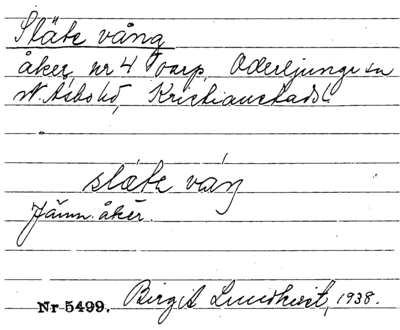 Släte vång
åker, nr 4 Varp, Oderljunga sn
N. Åsbo hd, Kristianstads l.
släte våŋ
Jämn åker.
Nr 5499. Birgit Lundkvist, 1938.